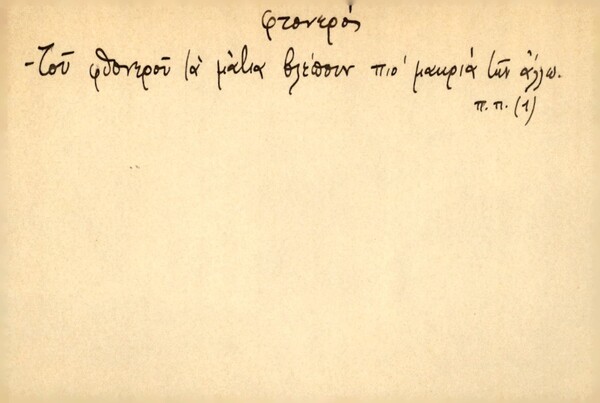 φτονερός
-Τοῦ φθονεροῦ τὰ μάτια βλέπουν πιό μακριά τῶν ἄλλω.
π.π. (1)